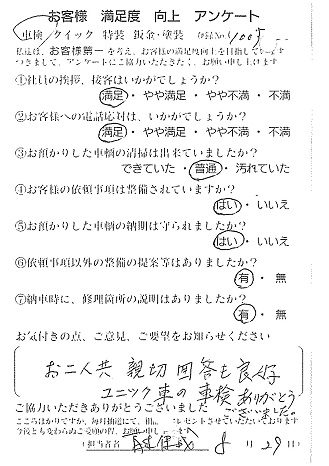 お客様 満足度 向上 アンケート
車検 クイック 特装 鈑金・塗装
私達は、お客様第一を考え、お客様の満足度向上を目指して
つきまして、アンケートにご協力いただきたく、お願い申し上げます
①社員の挨拶、接客はいかがでしょうか?
満足・やや満足・やや不満・不満
②お客様への電話応対は、いかがでしょうか?
満足・やや満足・やや不満・不満
③お預かりした車輌の清掃は出来ていましたか?
できていた・普通・汚れていた
④お客様の依頼事項は整備されていますか?
はい・いいえ
⑤お預かりした車輌の納期は守られましたか?
はい・いいえ
⑥依頼事項以外の整備の提案等はありましたか?
有・無
⑦納車時に、修理箇所の説明はありましたか?
有・無
お気付きの点、ご意見、ご要望をお知らせください
お二人共 親切 回答も良好
ユニック車の車検ありがとう
ございました。
ご協力いただきありがとうございました
こころばかりですが、毎月抽選にて、粗 プレゼントさせていただいております
今後とも変わらぬご愛顧の程、お願い申し
(担当者名 8月29日)